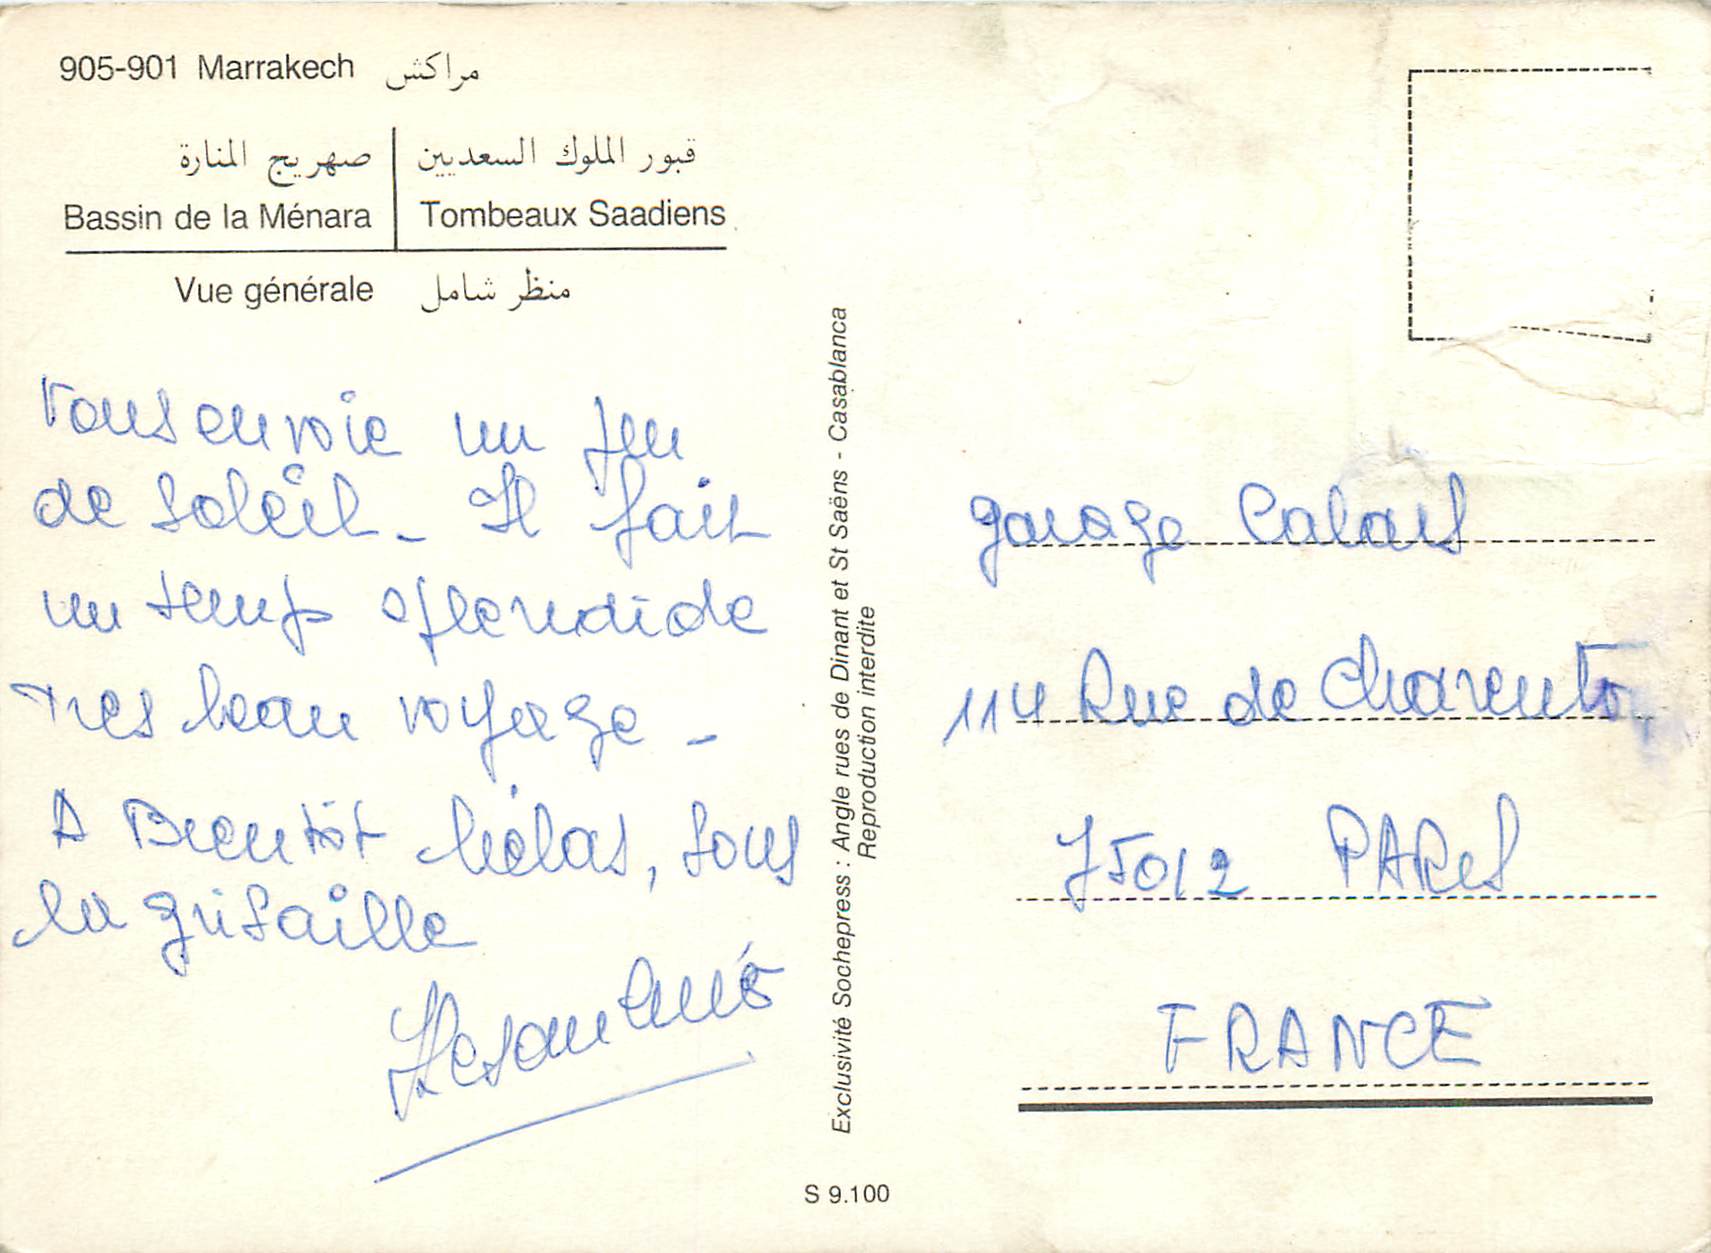 905-901 Marrakech مراكش
صهريج المنارة قبور الملوك السعديين
Bassin de la Ménara Tombeaux Saadiens
Vue générale منظر شامل
Vous envoie un peu
de soleil_ Il fait
un temps splendide
Tres beau voyage _
A Bientôt hélas, sous
la grisaille
Exclusivité Sochepress : Angle rues de Dinant et St Saëns - Casablanca
Reproduction interdite
garage Calais
114 Rue de Charenton
75012 PARIS
FRANCE
S 9.100